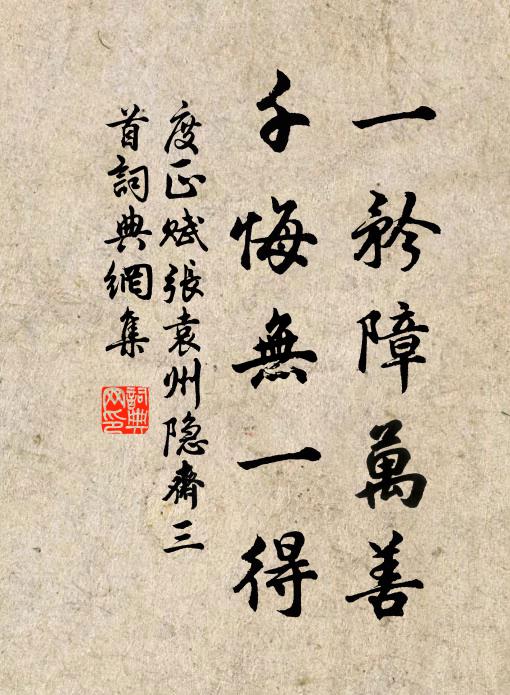 一矜障萬善
千悔無一得
度正賦張袁州隐齋三
首詞典網集
詞典網印